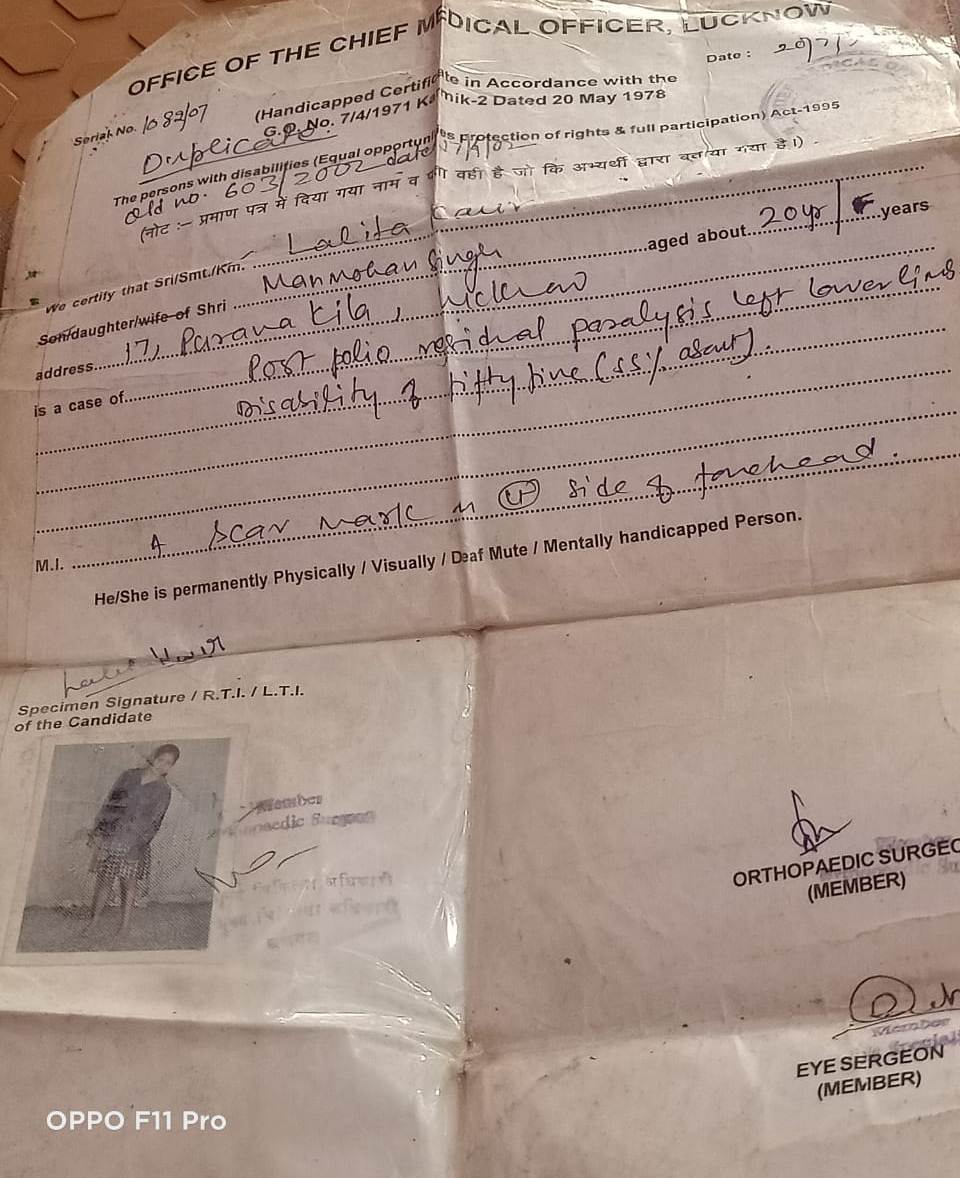 OFFICE OF THE CHIEF MEDICAL OFFICER, LUCKNOW
Date : 20/7/
Serial No. 1082/07
(Handicapped Certificate in Accordance with the
G.O. No. 7/4/1971 Karmik-2 Dated 20 May 1978
Duplicate
The persons with disabilities (Equal opportunities protection of rights & full participation) Act-1995
Old no. 603/2002 date
(नोट :- प्रमाण पत्र में दिया गया नाम व वही है जो कि अभ्यर्थी द्वारा बताया गया है।)
We certify that Sri/Smt./Km. Lalita Kaur
Son/daughter/wife of Shri Manmohan Singh aged about 20 yr / F years
address 17, Purana Kila, Lucknow
is a case of Post polio residual paralysis left lower limb
Disability of fifty five (55% about).
M.I. A scar mark on (Lt) side of forehead.
He/She is permanently Physically / Visually / Deaf Mute / Mentally handicapped Person.
Lalita Kaur
Specimen Signature / R.T.I. / L.T.I.
of the Candidate
Member
Surgeon
ORTHOPAEDIC SURGEO
(MEMBER)
Member
EYE SERGEON
(MEMBER)
OPPO F11 Pro